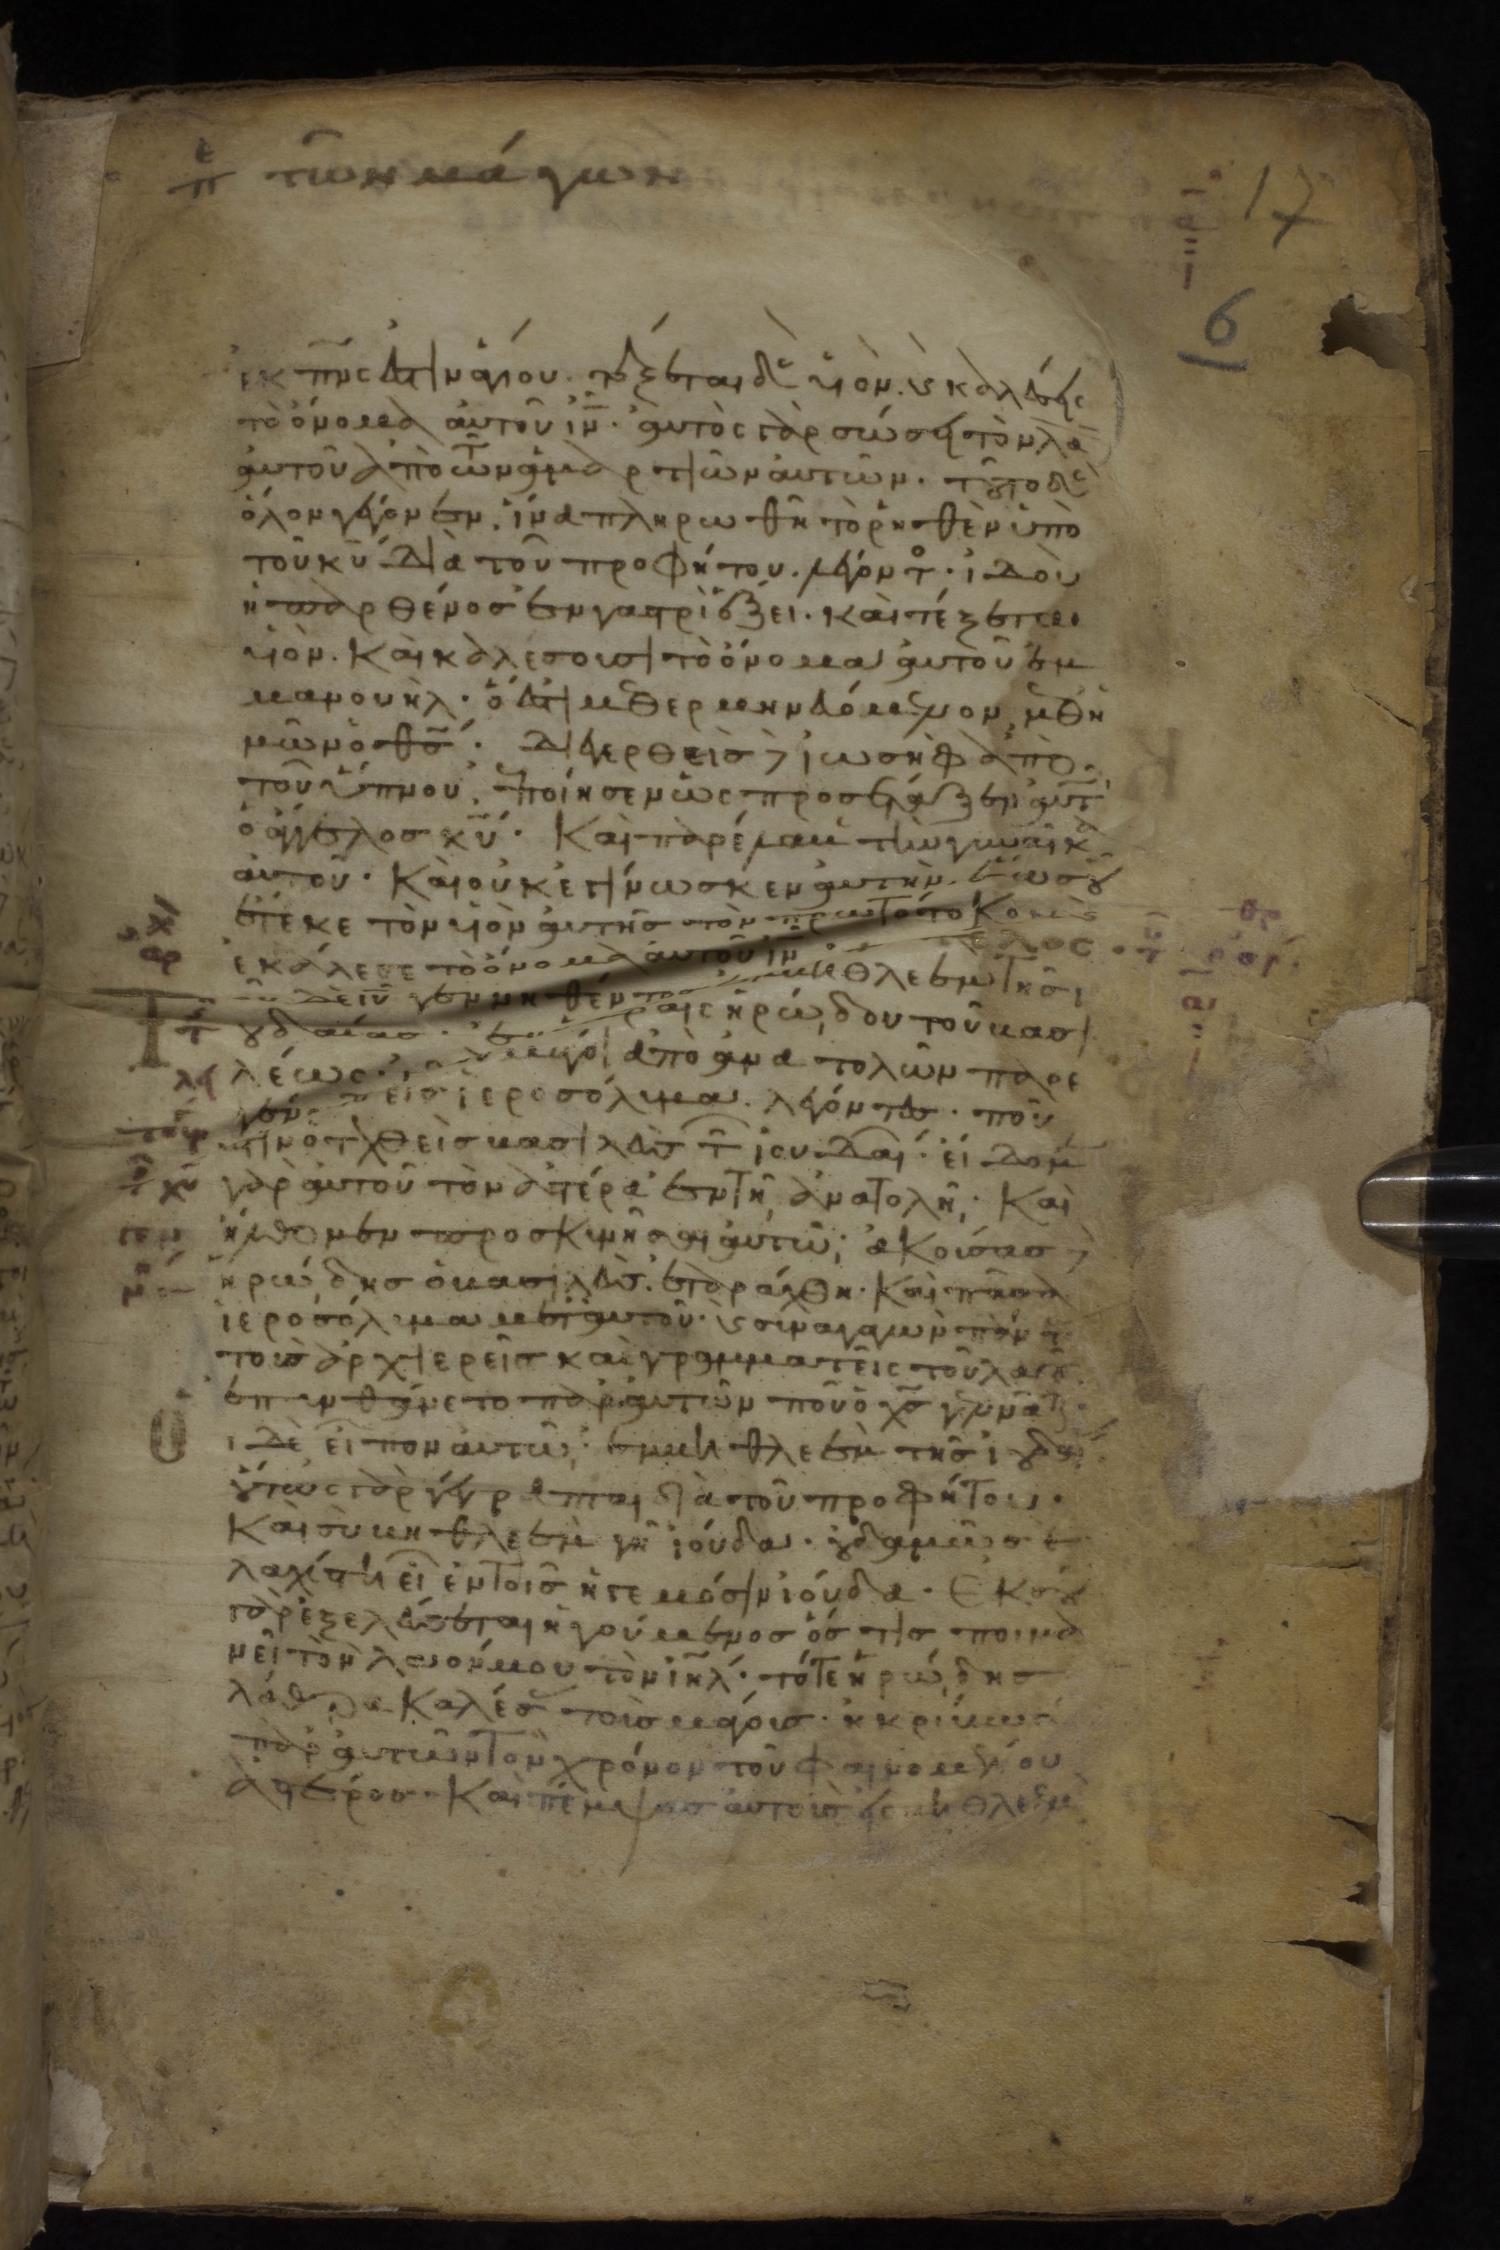 π̅ε̅ τῶν μάγων
17
6
ἐκ πν̅ς ἐστὶν ἁγίου. τέξεται δὲ υἱὸν. κ καλέσεις
τὸ ὄνομα αὐτοῦ ιν̅. αὐτὸς γὰρ σώσει τὸν λαὸ
αὐτοῦ ἀπὸ τῶν ἁμαρτιῶν αὐτῶν. τοῦτο δὲ
ὅλον γέγονεν. ἵνα πληρωθῆ τὸ ρηθὲν ὑπὸ
τοῦ κυ̅ διὰ τοῦ προφήτου. λέγοντο. ἰδοὺ
ἡ παρθένος ἐν γαστρὶ ἕξει. καὶ τέξεται
υἱὸν. καὶ καλέσουσι τὸ ὄνομα αὐτοῦ ἐμ
μανουὴλ. ὅ ἐστι μεθερμηνευόμενον μεθ ἡ
μῶν ὁ θσ̅. Διεγερθεὶς δ ἰωσὴφ ἀπὸ
τοῦ ὕπνου. ἐποίησεν ὡς προσέταξεν αὐτ
ὁ ἄγγελος κυ̅. Καὶ παρέλαβε τὴν γυναῖκα
αὐτοῦ. Καὶ οὐκ ἐγίνωσκεν αὐτὴν ἕως οὗ
ἔτεκε τὸν υἱὸν αὐτῆς τὸν πρωτότοκον κ
ἐκάλεσε τὸ ὄνομα αὐτοῦ ιν̅ τέλος
Τοῦ δὲ ιυ̅ γεννηθέντος ἐν βηθλεὲμ τῆς ι
ουδαίας. ἐν ἡμέραις ἡρώδου τοῦ βασι
λέως. ἰδοὺ μάγοι ἀπὸ ἀνατολῶν παρε
γέν εἰς ἱεροσόλυμα. λέγοντες. ποῦ
ἐστὶν ὁ τεχθεὶς βασιλεὺς τ ἰουδαί. εἴδομ
γὰρ αὐτοῦ τὸν ἀστέρα ἐν τῆ ἀνατολῆ. Καὶ
ἤλθομεν προσκυνῆσαι αὐτῶ. ἀκούσας δ
ἡρώδης ὁ βασιλεὺς. ἐταράχθη. Καὶ πᾶσα
ἱεροσόλυμα μετ αὐτοῦ. κ συναγαγὼν πάντ
τοὺς ἀρχιερεῖς καὶ γραμματεῖς τοῦ λαοῦ
ἐπυνθάνετο παρ αὐτῶν ποῦ ὁ χσ̅ γεννᾶτ
Ο
ι δὲ εἶπον αὐτῶ. ἐν βηθλεὲμ τῆς ἰουδαί
οὕτως γὰρ γέγραπται διὰ τοῦ προφήτου.
Καὶ σὺ βηθλεὲμ γῆ ἰούδα. οὐδαμῶς ἐ
λαχίστη εἶ ἐν τοῖς ἡγεμόσιν ἰούδα. Ἐκ σοῦ
γὰρ ἐξελεύσεται ἡγούμενος ὅστις ποιμα
νεῖ τὸν λαόν μου τὸν ιηλ̅. τότε ἡρώδης
λάθρα καλέσ τοὺς μάγους. ἠκρίβωσ
παρ αὐτῶν τὸν χρόνον τοῦ φαινομένου
ἀστέρος. Καὶ πέμψας αὐτοὺς εἰς βηθλεὲμ